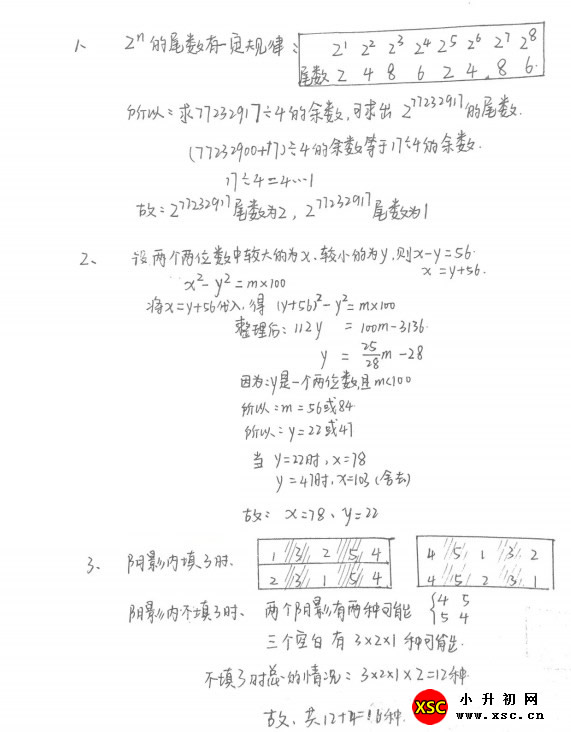 1、 2ⁿ的尾数有一定规律: 2¹ 2² 2³ 2⁴ 2⁵ 2⁶ 2⁷ 2⁸
尾数 2 4 8 6 2 4 8 6
所以:求77232917÷4的余数,可求出 2⁷⁷²³²⁹¹⁷的尾数.
(77232900+17)÷4的余数等于17÷4的余数.
17÷4=4…1
故:2⁷⁷²³²⁹¹⁷尾数为2, 2⁷⁷²³²⁹¹⁷ 尾数为1
2、 设两个两位数中较大的为x.较小的为y,则x-y=56.
x=y+56.
x²-y²=m×100
将x=y+56代入,得 (y+56)²-y²=m×100
整理后: 112y =100m-3136.
y = 25/28 m -28
因为:y是一个两位数,且m<100
所以:m=56或84
所以:y=22或47
当 y=22时,x=78
y=47时,x=103(舍去)
故: x=78、y=22
3、 阴影内填3时、 1 3 2 5 4 4 5 1 3 2
2 3 1 5 4 4 5 2 3 1
阴影内不填3时、 两个阴影有两种可能 {4 5
5 4
三个空白 有 3×2×1 种可能.
不填3时总的情况: 3×2×1×2=12种.
故、共12+4=16种.
XSC 小升初网
www.xsc.cn